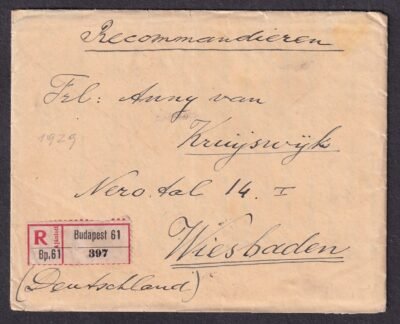 Recommandieren
Frl: Anny van
Kruijswijk
1929
Nero. tal 14. I
R
Budapest 61
Bp.61
397
Wiesbaden
(Deutschland)